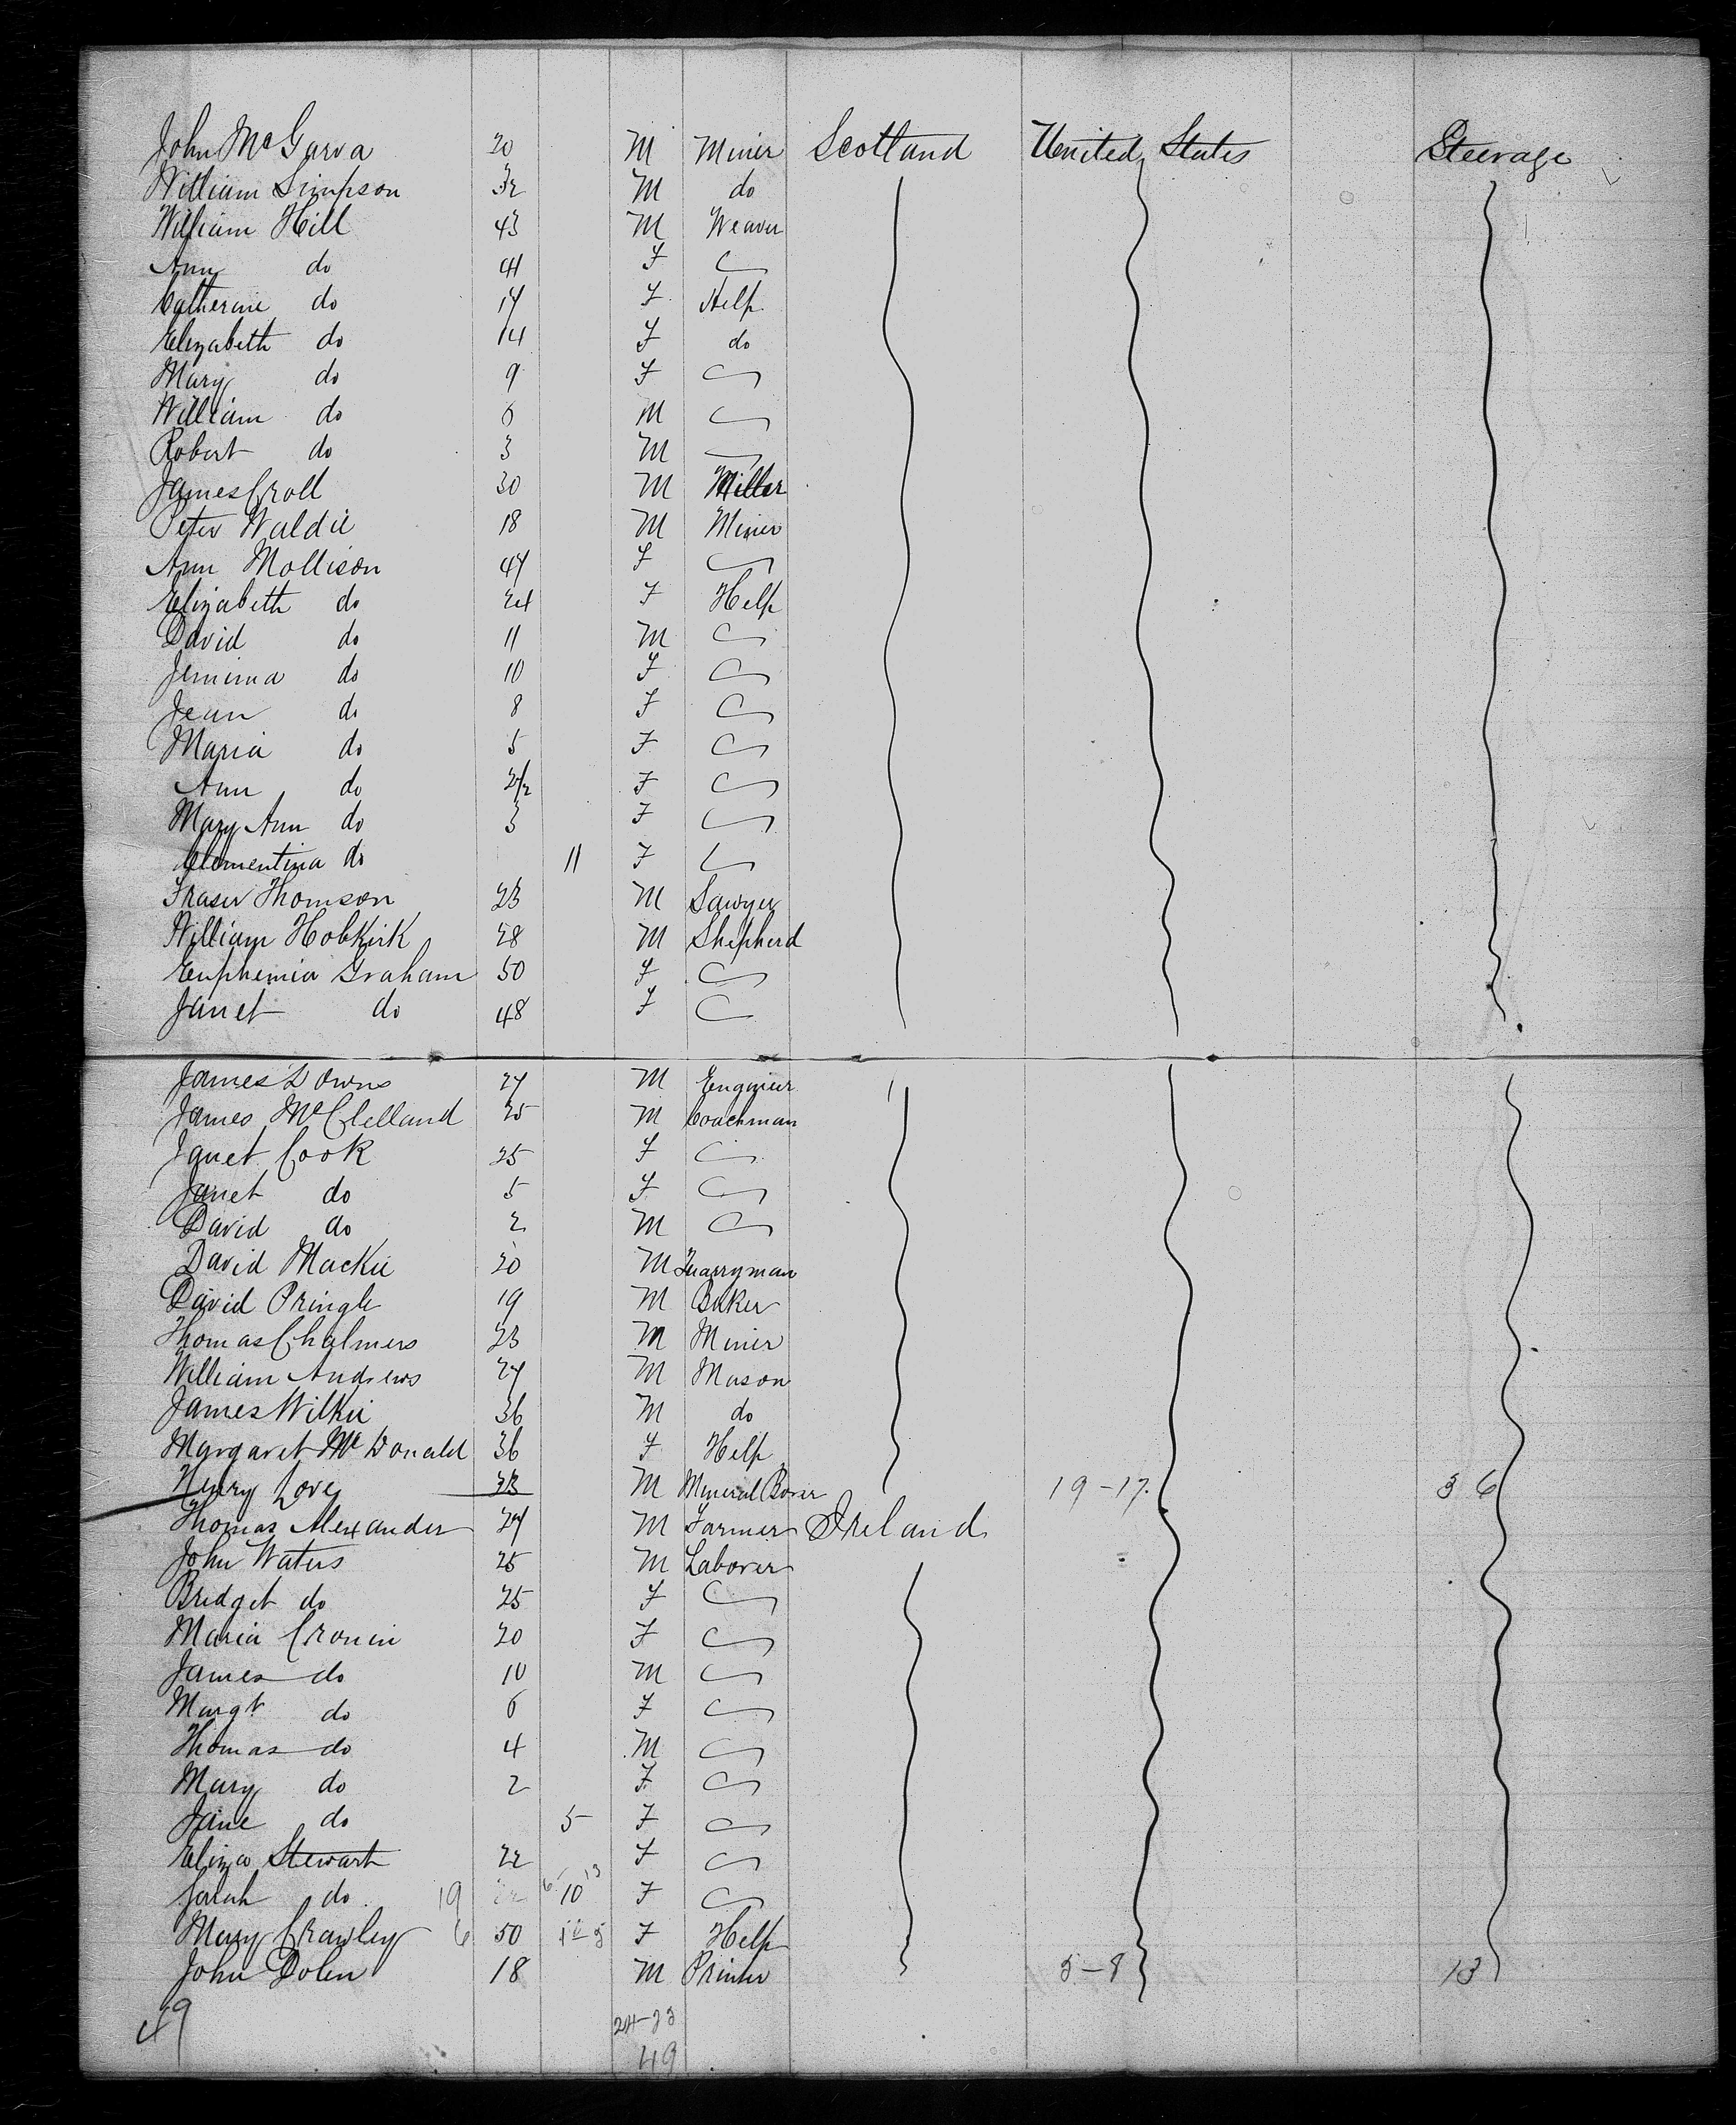 John McGarva 20 M Miner Scotland United States Steerage
William Simpson 32 M do
William Hill 43 M Weaver
Ann do 41 F
Catherine do 17 F Help
Elizabeth do 14 F do
Mary do 9 F
William do 6 M
Robert do 3 M
James Croll 30 M Miller
Peter Waldie 18 M Miner
Ann Mollison 47 F
Elizabeth do 24 F Help
David do 11 M
Jemima do 10 F
Jean do 8 F
Maria do 5 F
Ann do F
Mary Ann do 3 F
Clementina do 11 F
Fraser Thomson 23 M Sawyer
William Hobkirk 28 M Shepherd
Euphemia Graham 50 F
Janet do 48 F
James Downs 27 M Engineer
James McClelland 25 M Coachman
Janet Cook 25 F
Janet do 5 F
David do 2 M
David Mackie 20 M Quarryman
David Pringle 19 M Baker
Thomas Chalmers 23 M Miner
William Andrews 27 M Mason
James Wilkie 36 M do
Margaret McDonald 36 F Help
Henry Love 23 M Mineral Borer 19-17 36
Thomas Alexander 27 M Farmer Ireland
John Waters 25 M Laborer
Bridget do 25 F
Maria Cronin 20 F
James do 10 M
Margt do 6 F
Thomas do 4 M
Mary do 2 F
Jane do 5 F
Eliza Stewart 22 F
Sarah do 19 10 F
Mary Crawley 6 50 F Help
John Dolen 18 M Printer 5-8 13
49 24-23
49